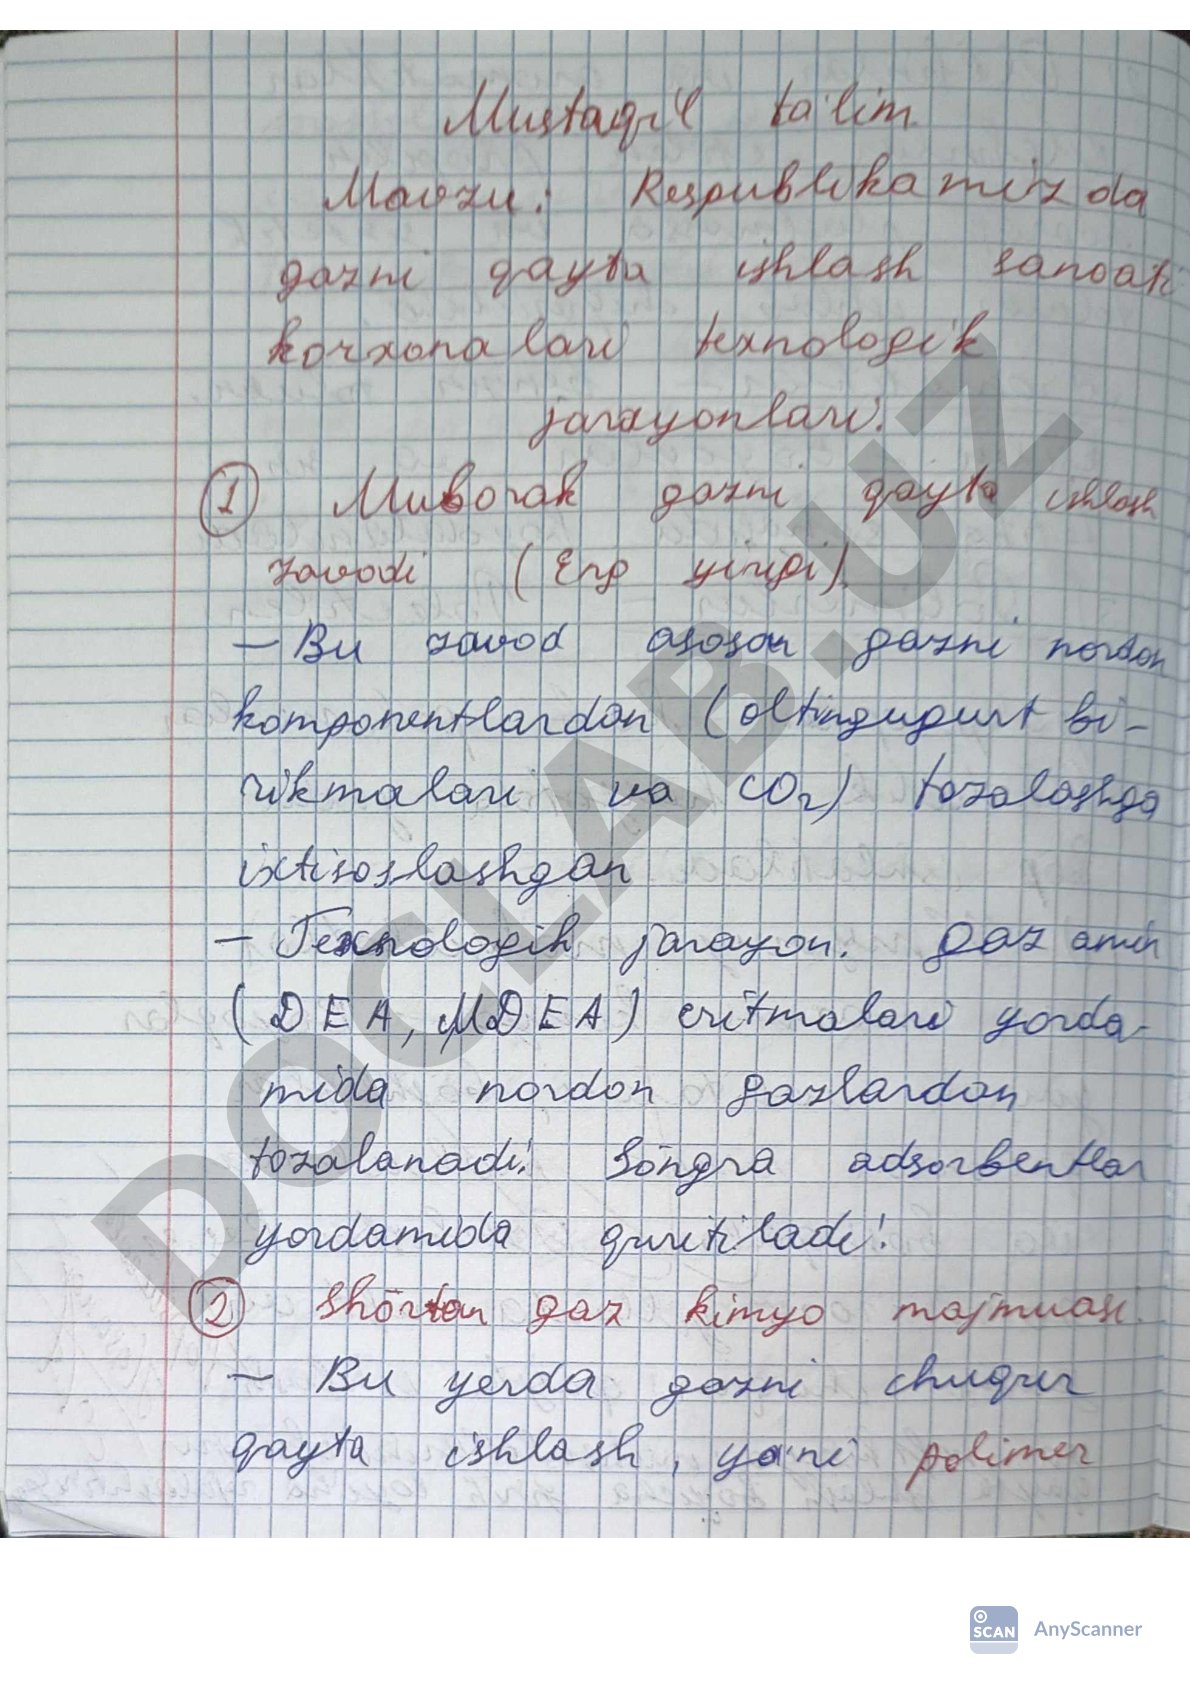 Mustaqil ta'lim
Mavzu: Respublikamizda
gazni qayta ishlash sanoati
korxonalari texnologik
jarayonlari.
1 Muborak gazni qayta ishlash
zavodi (Eng yirigi).
- Bu zavod asosan gazni nordon
komponentlardan (oltingugurt bi-
rikmalari va CO2) tozalashga
ixtisoslashgan
- Texnologik jarayon. Gaz amin
(DEA, MDEA) eritmalari yorda-
mida nordon gazlardan
tozalanadi. Söngra adsorbentlar
yordamida quritiladi.
2 Shörtan gaz kimyo majmuasi
- Bu yerda gazni chuqur
qayta ishlash, ya'ni polimer
DOCLAB.UZ
SCAN AnyScanner